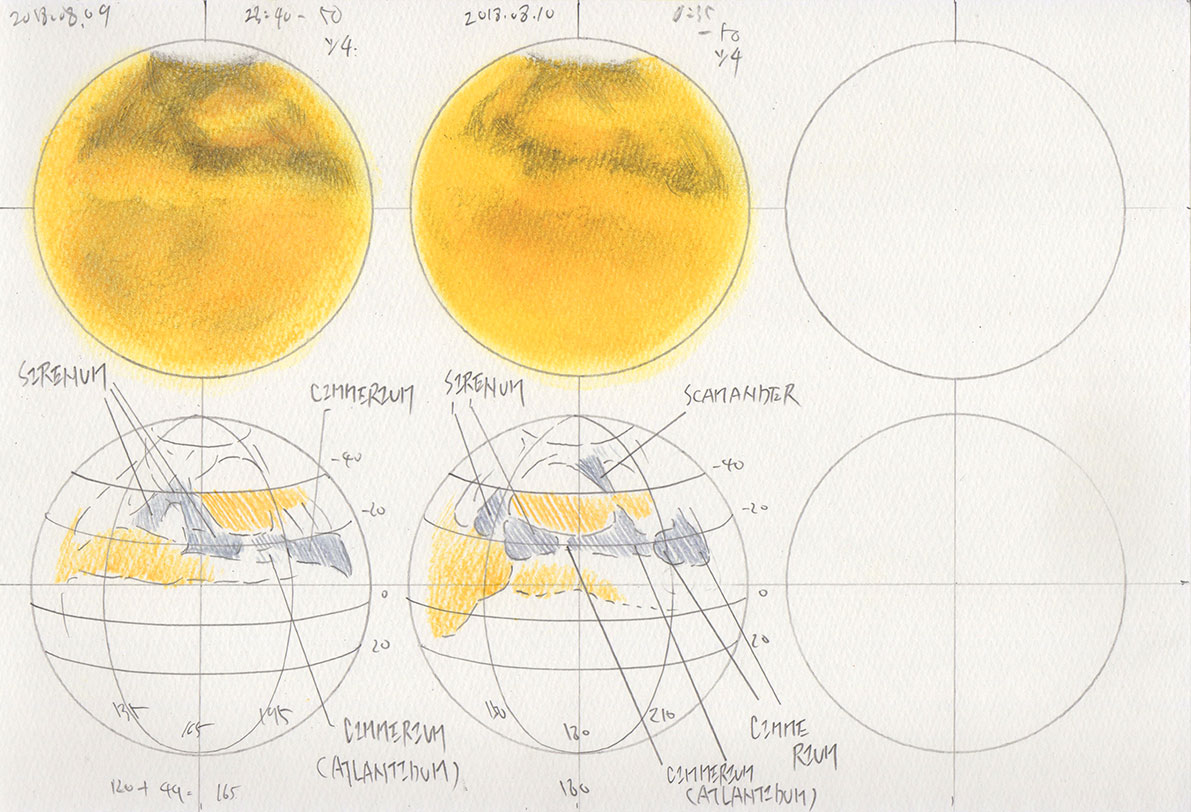 2018.08.09
23:40 - 50
2018.08.10
0:35
- 50
SIRENUM
CIMMERIUM
SIRENUM
SCAMANDER
-40
-40
-20
-20
0
0
20
20
135
165
195
150
180
210
CIMMERIUM
(ATLANTIDUM)
CIMME
RIUM
CIMMERIUM
(ATLANTIDUM)
165
180